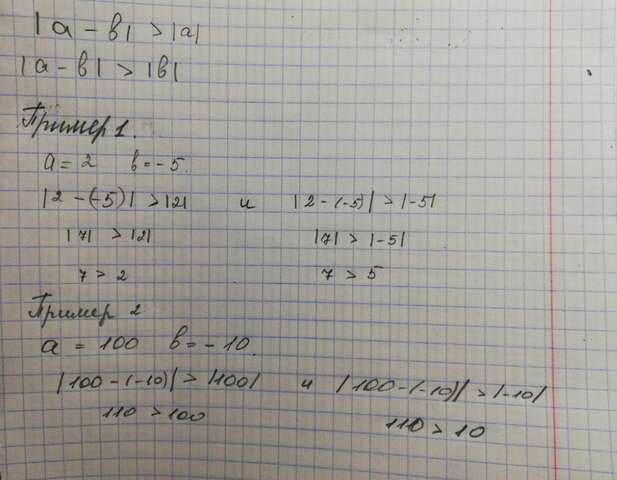 |a - b| > |a|
|a - b| > |b|
Пример 1.
a = 2 b = - 5.
|2 - (-5)| > |2| и |2 - (-5)| > |-5|
|7| > |2| |7| > |-5|
7 > 2 7 > 5
Пример 2
a = 100 b = - 10.
|100 - (-10)| > |100| и |100 - (-10)| > |-10|
110 > 100 110 > 10